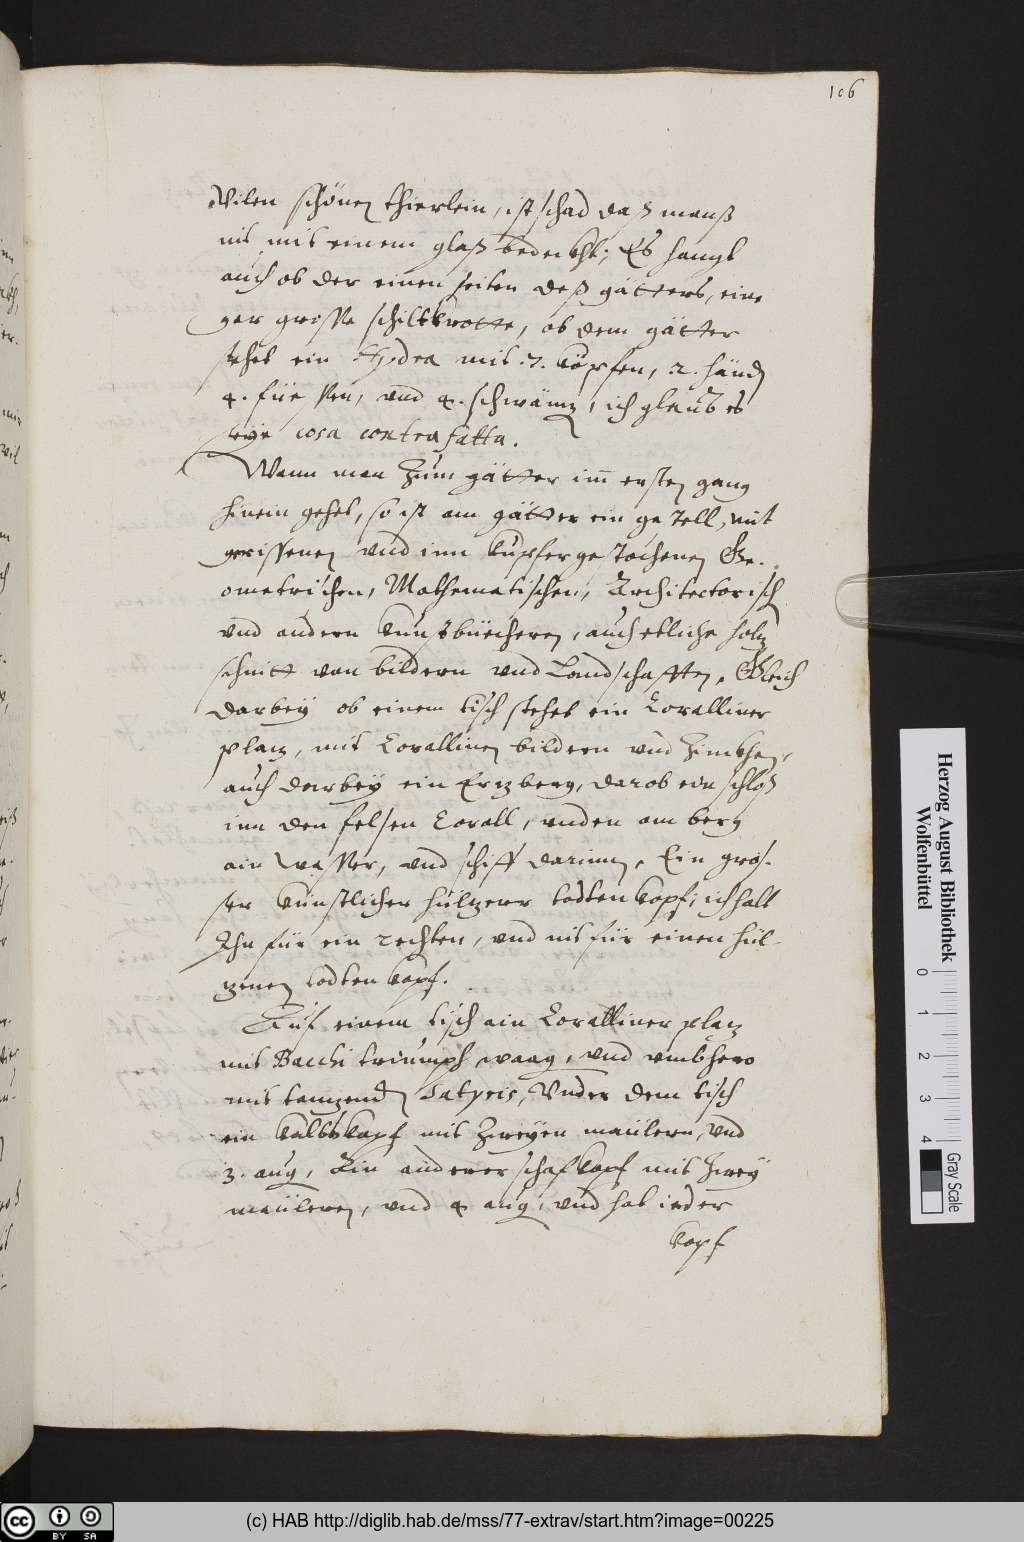 106
Vilen schönen thierlein, ist schad daß manß
nit mit einem glaß bedeckht; Es hangt
auch ob der einen seiten deß gätters, eine
gar grosse schiltkrotte, ob dem gätter
stehet ein Hydra mit 7. köpfen, 2. händ
4. füessen, und 4. schwäntz, ich glaub es
seye cosa contrafatta.
Wann man zum gätter im ersten gang
hinein gehet, so ist am gätter ein gestell, mit
gerissenen und inn kupfer gestochenen Ge-
ometrischen, Mathematischen, Architectorisch
und andern kunstbüecheren, auch etliche holtz
schnitt von bildern und Landschafften, Gleich
darbey ob einem tisch stehet ein Coralliner
platz, mit Corallinen bildern und Zinckhen,
auch darbey ein Ertzberg, darob ein schloß
inn den felsen Corall, unden am berg
ain wasser, und schiff darinn, Ein gros-
ser künstlicher hültzerer todtenkopf, ich halt
Ihn für ein rechten, und nit für einen hül-
tzenen todten kopf.
Auf einem tisch ain Coralliner platz
mit Bacchi triumph waag, und umbhero
mit tantzenden Satyris, Under dem tisch
ein kalbskopf mit Zweyen mäülern, und
3. aug, Ein anderer schafkopf mit Zwey
mäüleren, und 4 aug, und hat ieder
kopf
Herzog August Bibliothek
Wolfenbüttel
0 1 2 3 4
Gray Scale
cc BY SA
(c) HAB http://diglib.hab.de/mss/77-extrav/start.htm?image=00225